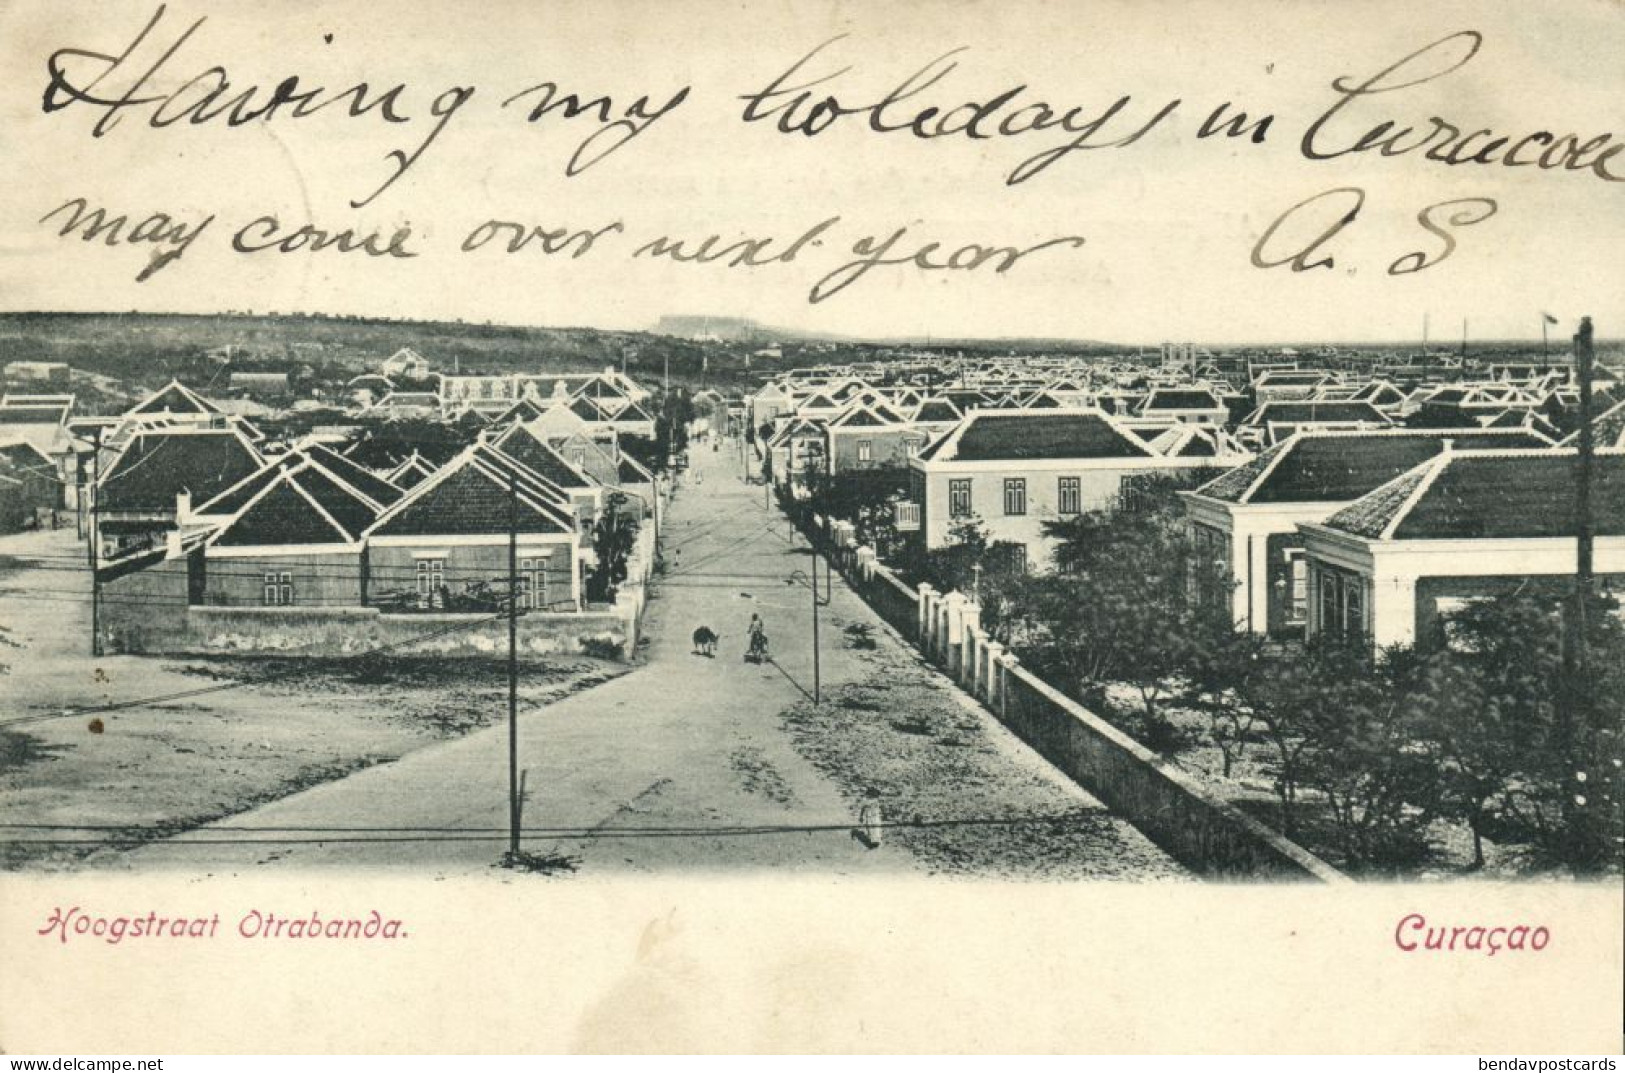 Having my holedays in Curacoa
may come over next year A. S
Hoogstraat Otrabanda.
Curaçao
bendavpostcards